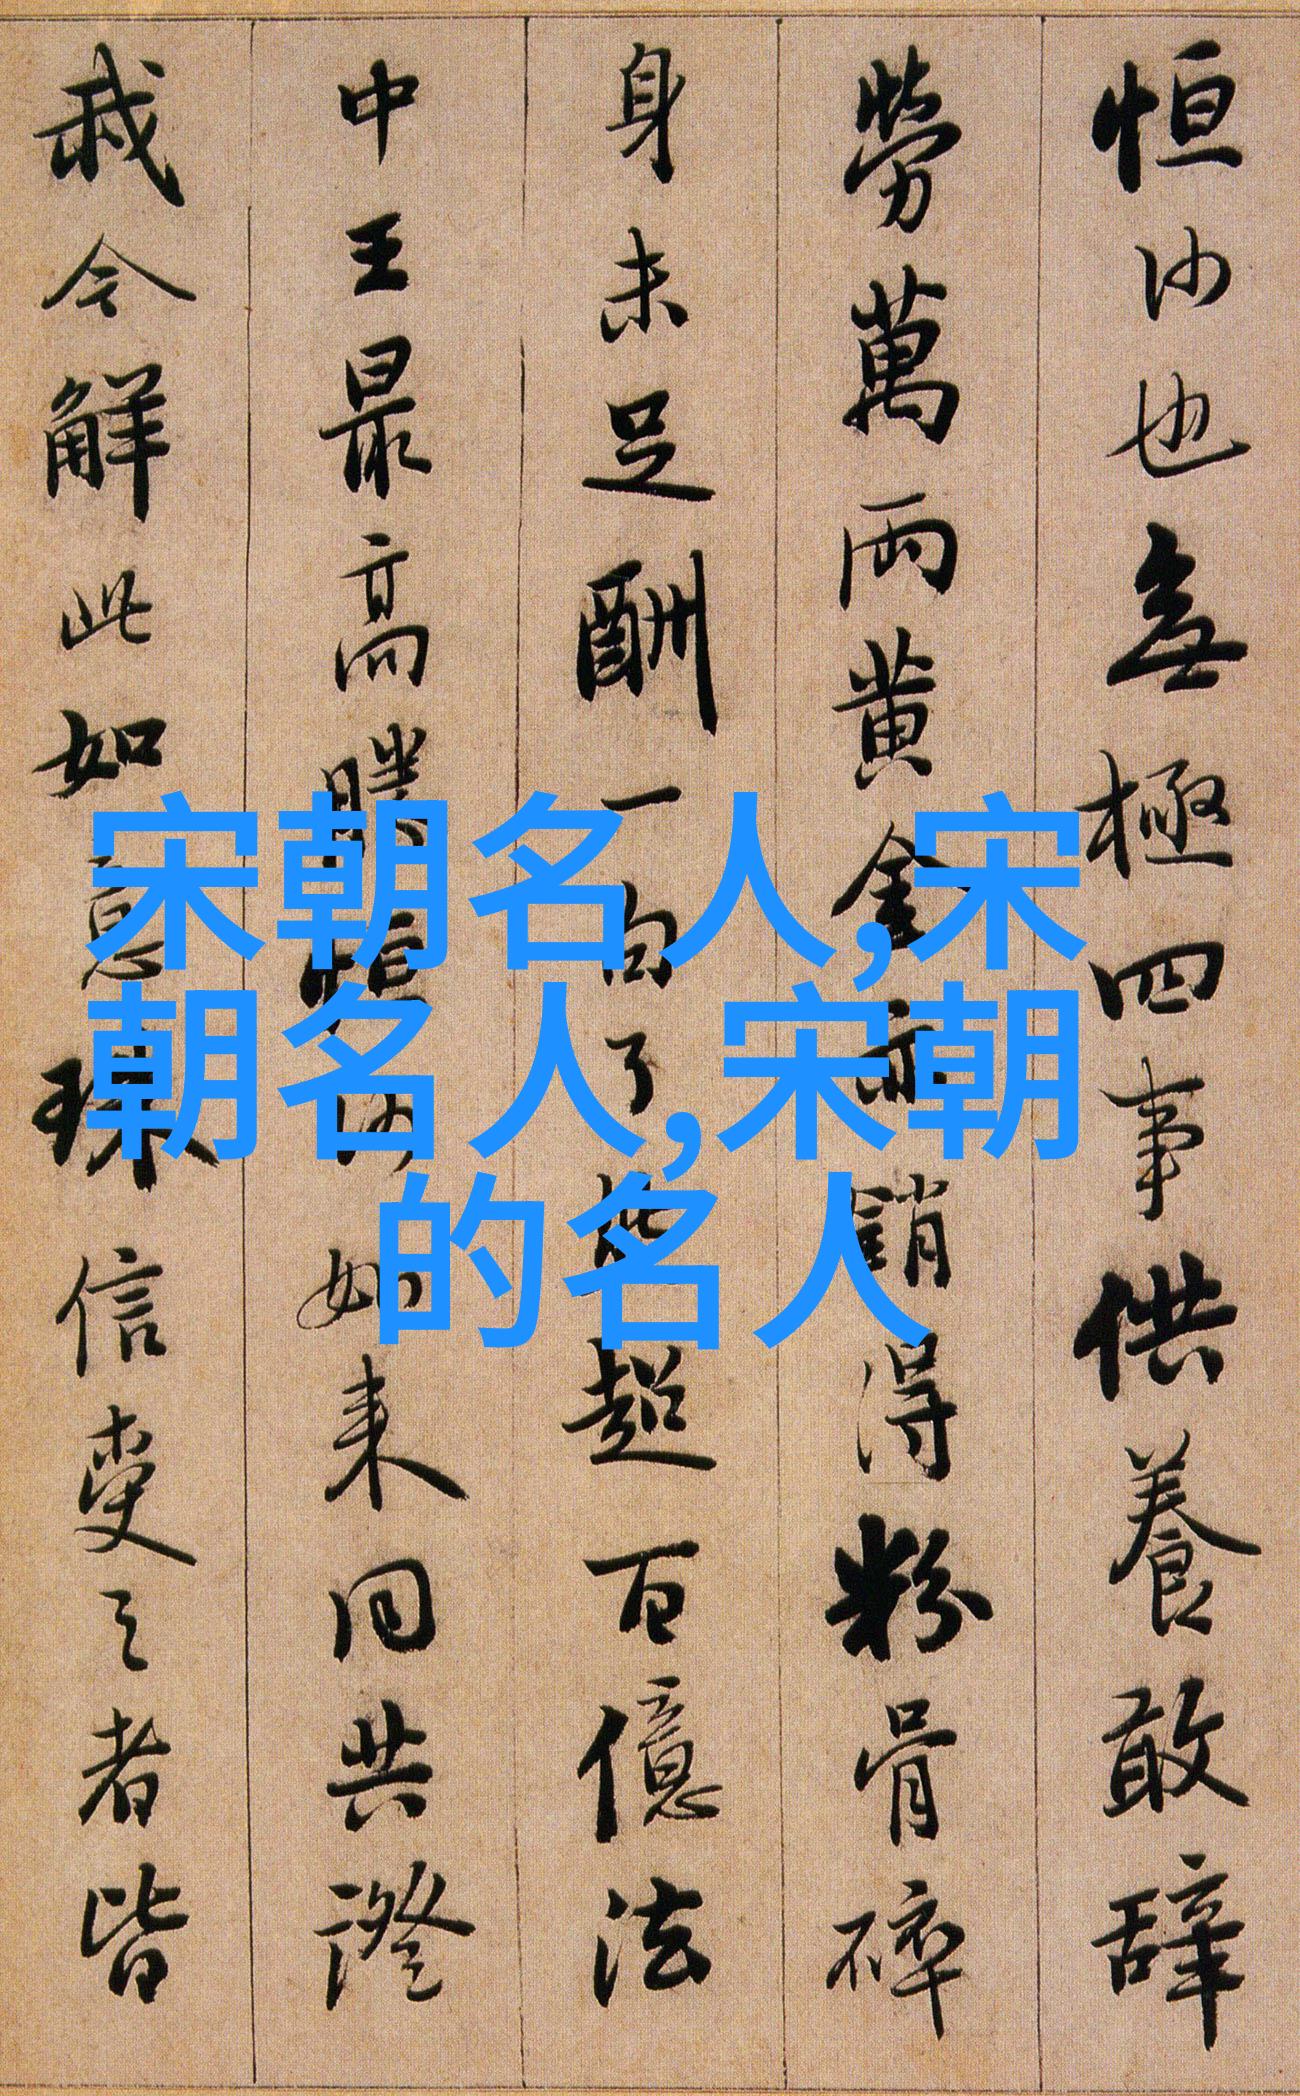 恒沙也無極四事供養敢辭
勞萬兩黄金亦銷得粉骨碎
身未足酬一句了然超百億法
中王最高勝恒沙如来同共證
我今解此如意珠信受之者皆
宋朝名人,宋
朝名人,宋朝
的名人